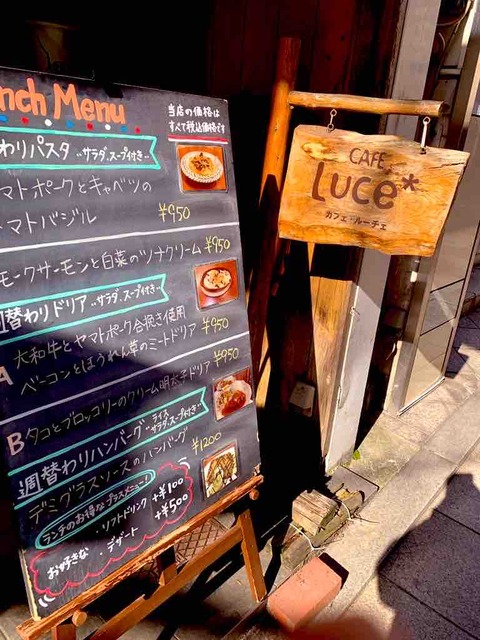 nch Menu
当店の価格は
すべて税込価格です
わりパスタ ‥サラダ、スープ付き‥
マトポークとキャベツの
トマトバジル ¥950
モークサーモンと白菜のツナクリーム ¥950
週替わりドリア ‥サラダ、スープ付き‥
A 大和牛とヤマトポーク合挽き使用
ベーコンとほうれん草のミートドリア ¥950
B タコとブロッコリーのクリーム明太子ドリア ¥950
週替わりハンバーグ ‥ライス サラダ、スープ付き‥
デミグラスソースのハンバーグ ¥1200
ランチのお得なプラスメニュー!
お好きな
・ソフトドリンク +¥100
・デザート +¥500
CAFE
Luce*
カフェ・ルーチェ